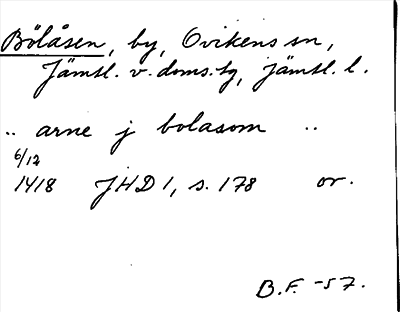 Bölåsen, by, Ovikens sn,
Jämtl. v. doms.tg, Jämtl. l.
.. arne j bolasom ..
6/12
1418 JHD 1, s. 178 or.
B.F. -57.